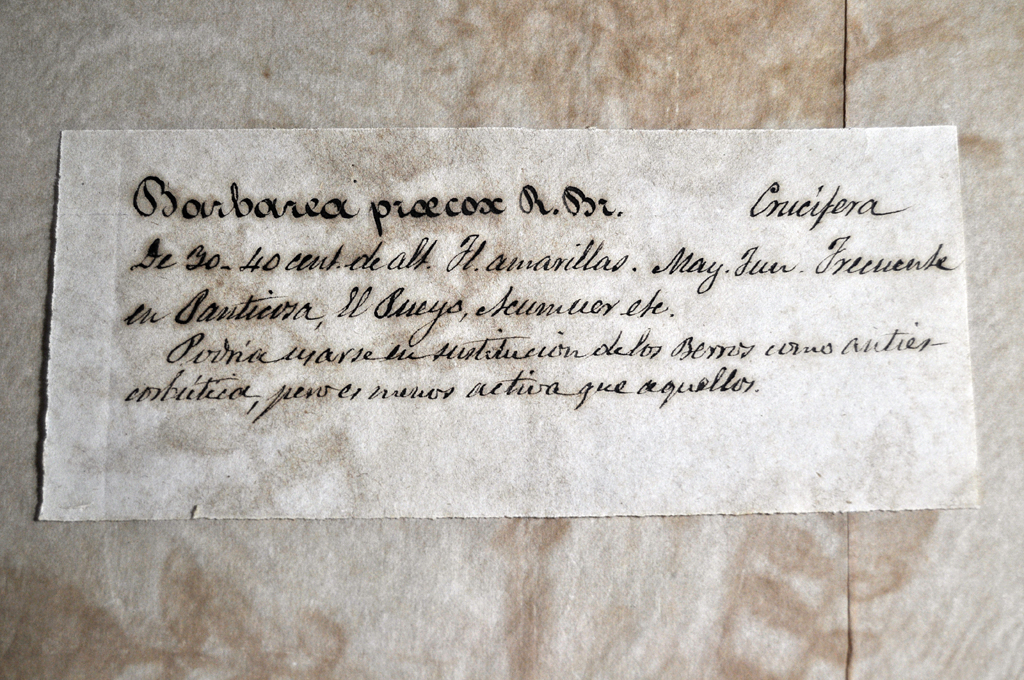 Barbarea præcox R. Br. Crucífera
De 30-40 cent. de alt. Fl. amarillas. May. Jun. Frecuente
en Panticosa, El Pueyo, Acumuer etc.
Podría usarse en sustitucion de los Berros como anties-
corbútica, pero es menos activa que aquellos.